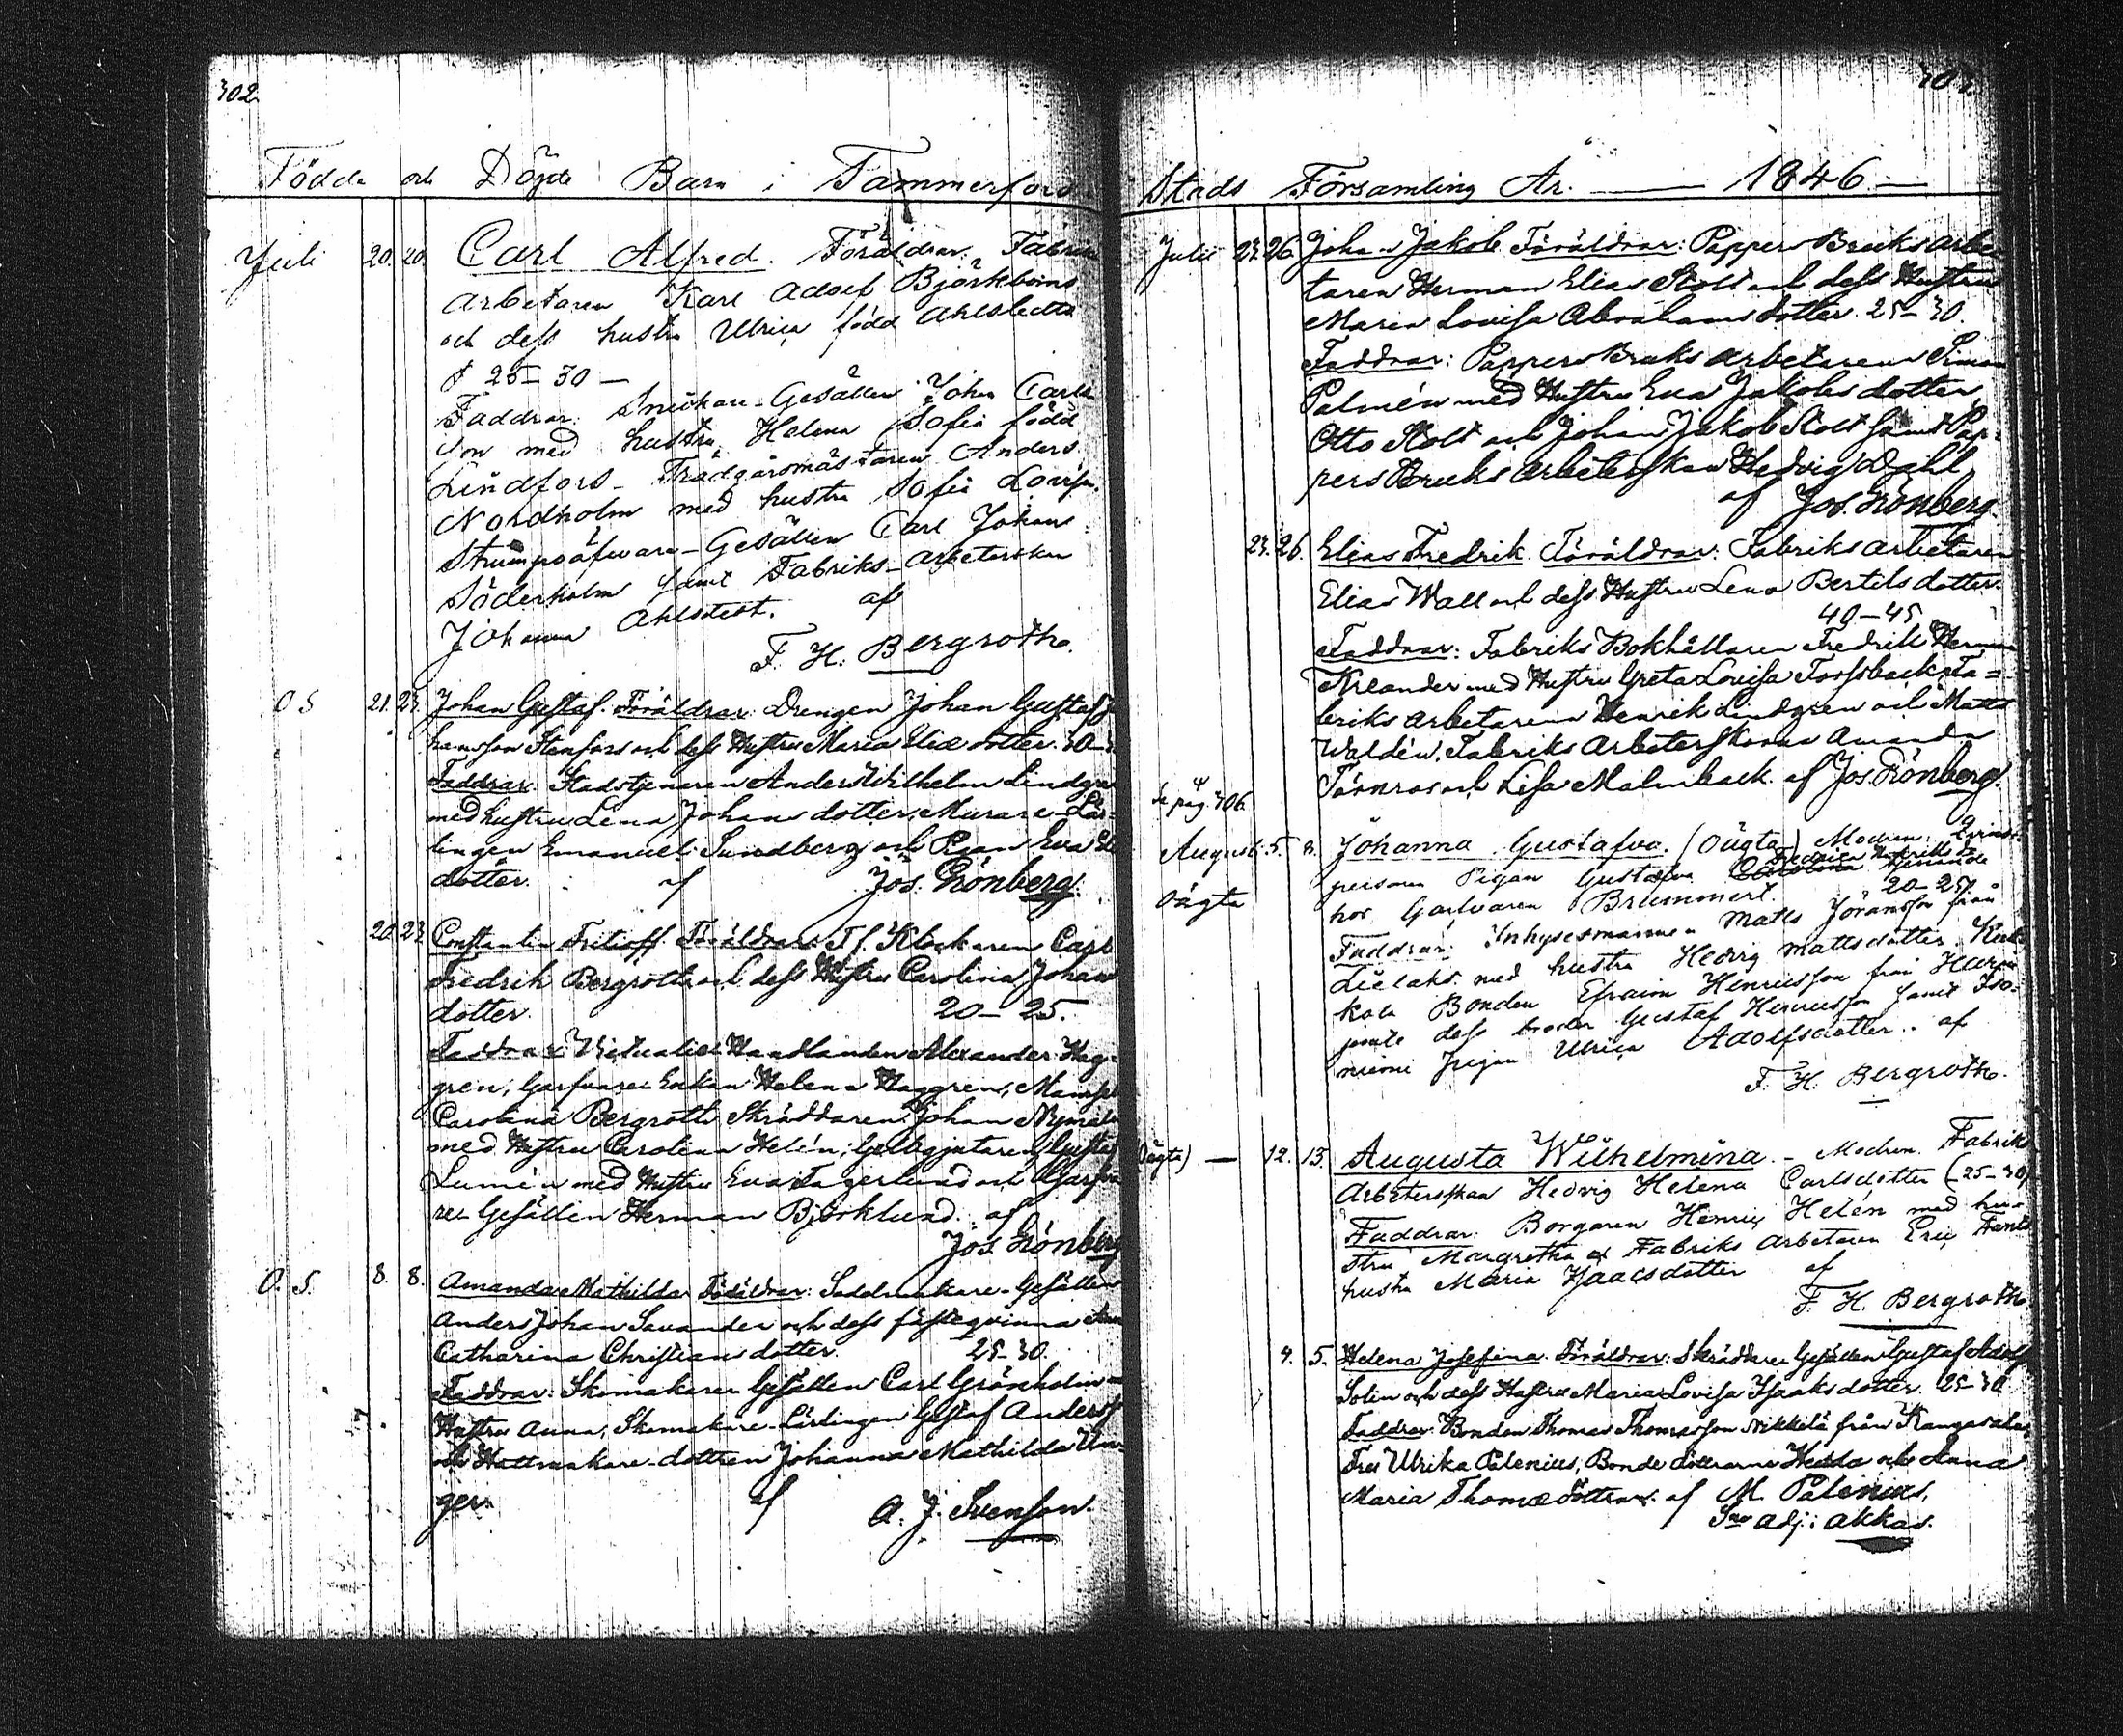 302.
Födde och Döpte Barn i Tammerfors
Juli 20. 20. Carl Alfred. Föräldrar: Fabriks
arbetaren Karl Adolf Björkboms
och dess hustru Ulrica född Ahlstedts
25-30 —
Faddrar: Snickare-Gesällen Johan Carls-
son med hustru Helena Sofia född
Lindfors - Trädgårsmästaren Anders
Nordholm med hustru Sofia Lovisa.
Strumpväfvare-Gesällen Carl Johan
Söderholm samt Fabriks-arbeterskan
Johanna Ahlstedt. af
F. H. Bergroth.
O S 21. 23. Johan Gustaf. Föräldrar: Drengen Johan Gustaf Jo
hansson Stenfors och dess Hustru Maria Eliæ dotter. 30-
Faddrar: Stadstjenaren Anders Wilhelm Lindgren
med hustru Lena Johans dotter, Murare-Lär-
lingen Emanuel Sundberg och Pigan Eva
dotter. af Jos. Grönberg.
20. 23. Constantin Fritioff. Föräldrar: T. f. Klockaren Carl
Fredrik Bergroth och dess Hustru Carolina Johans
dotter. 20-25.
Faddrar: Victualie Handlanden Alexander Hag-
gren, Garfvare Enkan Helena Haggren, Mamsell
Carolina Bergroth, Skräddaren Johan Nyman
med Hustru Carolina Helén; Gelbgjutaren Gustaf
Lumén med Hustru Eva Fagerlund och Garfva
re-Gesällen Herman Björklund. af
Jos. Grönberg
O. S. 8. 8. Amanda Mathilda Föräldrar: Sadelmakare-Gesällen
Anders Johan Savander och dess fästeqvinna Anna
Catharina Christians dotter. 25-30.
Faddrar: Skomakare Gesällen Carl Grönholm
Hustru Anna, Skomakare-Lärlingen Gustaf Anderss
och Hattmakare-dottren Johanna Mathilda Un-
ger. af A. J. Svenson.
303.
Stads Församling År. — 1846 —
Julii 23. 26. Johan Jakob. Föräldrar: Pappers Bruks arbe
taren Herman Elias Stolt och dess Hustru
Maria Lovisa Abrahams dotter. 25-30.
Faddrar: Pappers Bruks arbetaren Simon
Palmén med Hustru Eva Jakobs dotter,
Otto Stolt och Johan Jakob Stolt samt Pap-
pers Bruks arbeterskan Hedvig Dahl,
af Jos. Grönberg.
23. 26. Elias Fredrik. Föräldrar: Fabriks arbetaren
Elias Wall och dess Hustru Lena Bertels dotter.
40-45
Faddrar: Fabriks Bokhållaren Fredrik Herman
Nreander med Hustru Greta Lovisa Forssback, Fa=
briks arbetarena Henrik Lindgren och Matts
Waldén, Fabriks Arbeterskorna Amanda
Törnroos och Lisa Malmback. af Jos. Grönberg.
Se pag. 306.
Augusti 5. 8. Johanna Gustafva. (Oägta) Modren: Qvinns-
personen Pigan Gustafva Fredrica Henriksdr
hos Garfvaren Brummert. 20-25.
Oägta
Faddrar: Inhysesmannen Matts Jöransson från
Lielaks med hustru Hedvig Mattsdotter.
Bonden Efraim Henricsson från
jemte dess broder Gustaf Henricsson samt
niemi pigan Ulrica Adolfsdotter. af
F. H. Bergroth.
Oägta) — 12. 13. Augusta Wilhelmina. - Modren. Fabriks
Arbeterskan Hedvig Helena Carlsdotter (25-30)
Faddrar: Borgaren Henric Helén med hu-
stru Margretha Fabriks arbetaren Eric
hustru Maria Isaacsdotter af
F. H. Bergroth
4. 5. Helena Josefina. Föräldrar: Skräddare Gesällen Gustaf Adolf
Solin och dess Hustru Maria Lovisa Isaaks dotter. 25-30
Faddrar: Bonden Thomas Thomasson Nikkilä från Kangasala,
Fru Ulrika Palenius, Bonde döttrarne Hedda och Anna
Maria Thomæ döttrar. af M. Palenius,
adj: akkas.